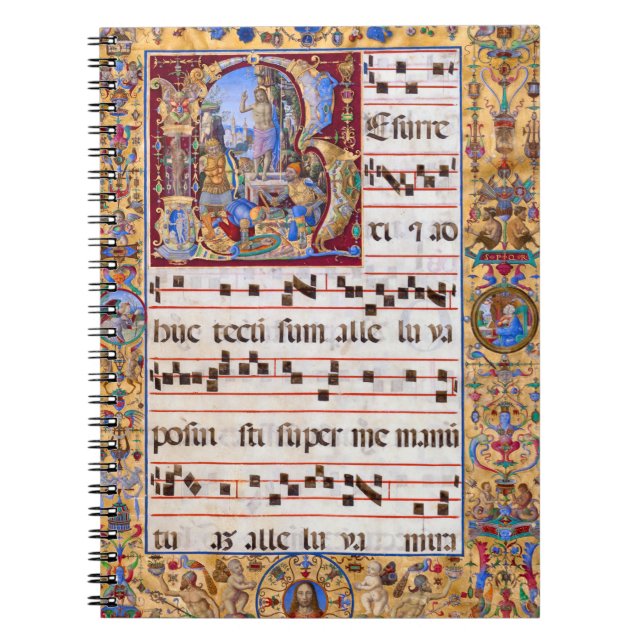 Resurre
xi ⁊ ad
huc tecū sum alle lu ya
S·P·Q·R
posui sti super me manū
tu aʒ alle lu ya mira